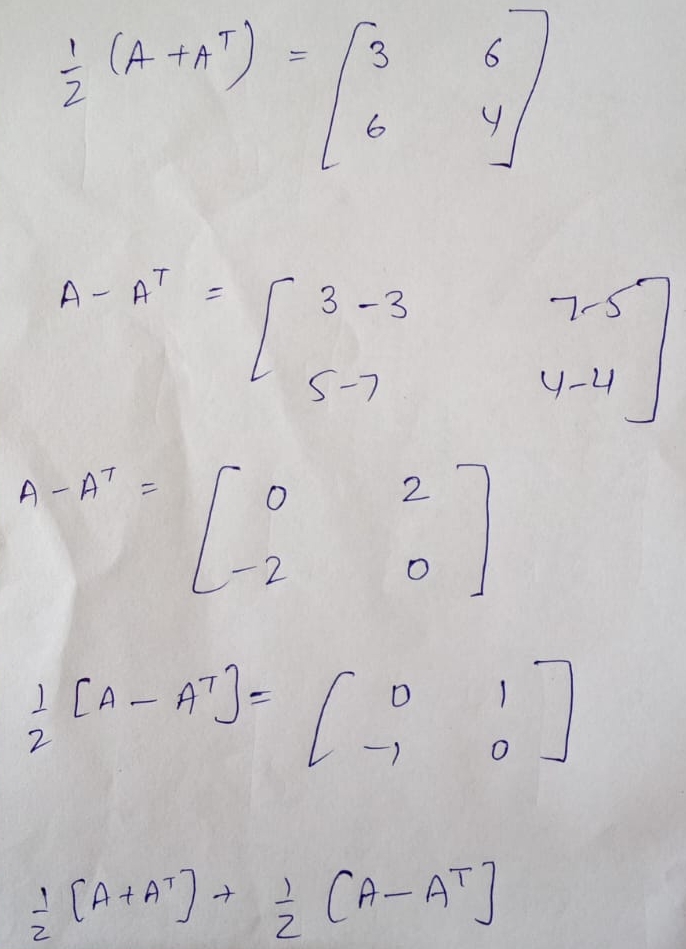 1/2 (A + A^T) = [3 6
6 4]
A - A^T = [3-3 7-5
5-7 4-4]
A - A^T = [0 2
-2 0]
1/2 [A - A^T] = [0 1
-1 0]
1/2 [A + A^T] + 1/2 [A - A^T]